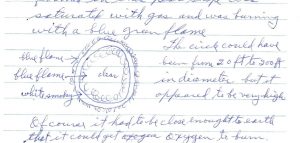 saturated with gas and was burning
with a blue green flame
The circle could have
blue flame
been from 20 ft to 200 ft
blue flame
clear
in diameter but it
white smoky
appeared to be very high
Of course it had to be close enought to earth
that it could get oxogen Oxygen to burn.